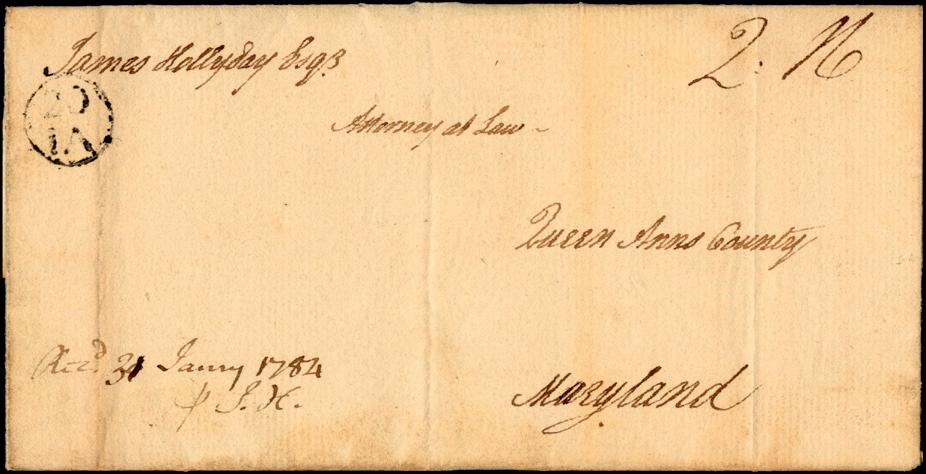 James Hollyday Esqr.
2. N
20
IA
Attorney at Law
Queen Anns County
Recd. 31 Janry 1784
p J. H.
Maryland